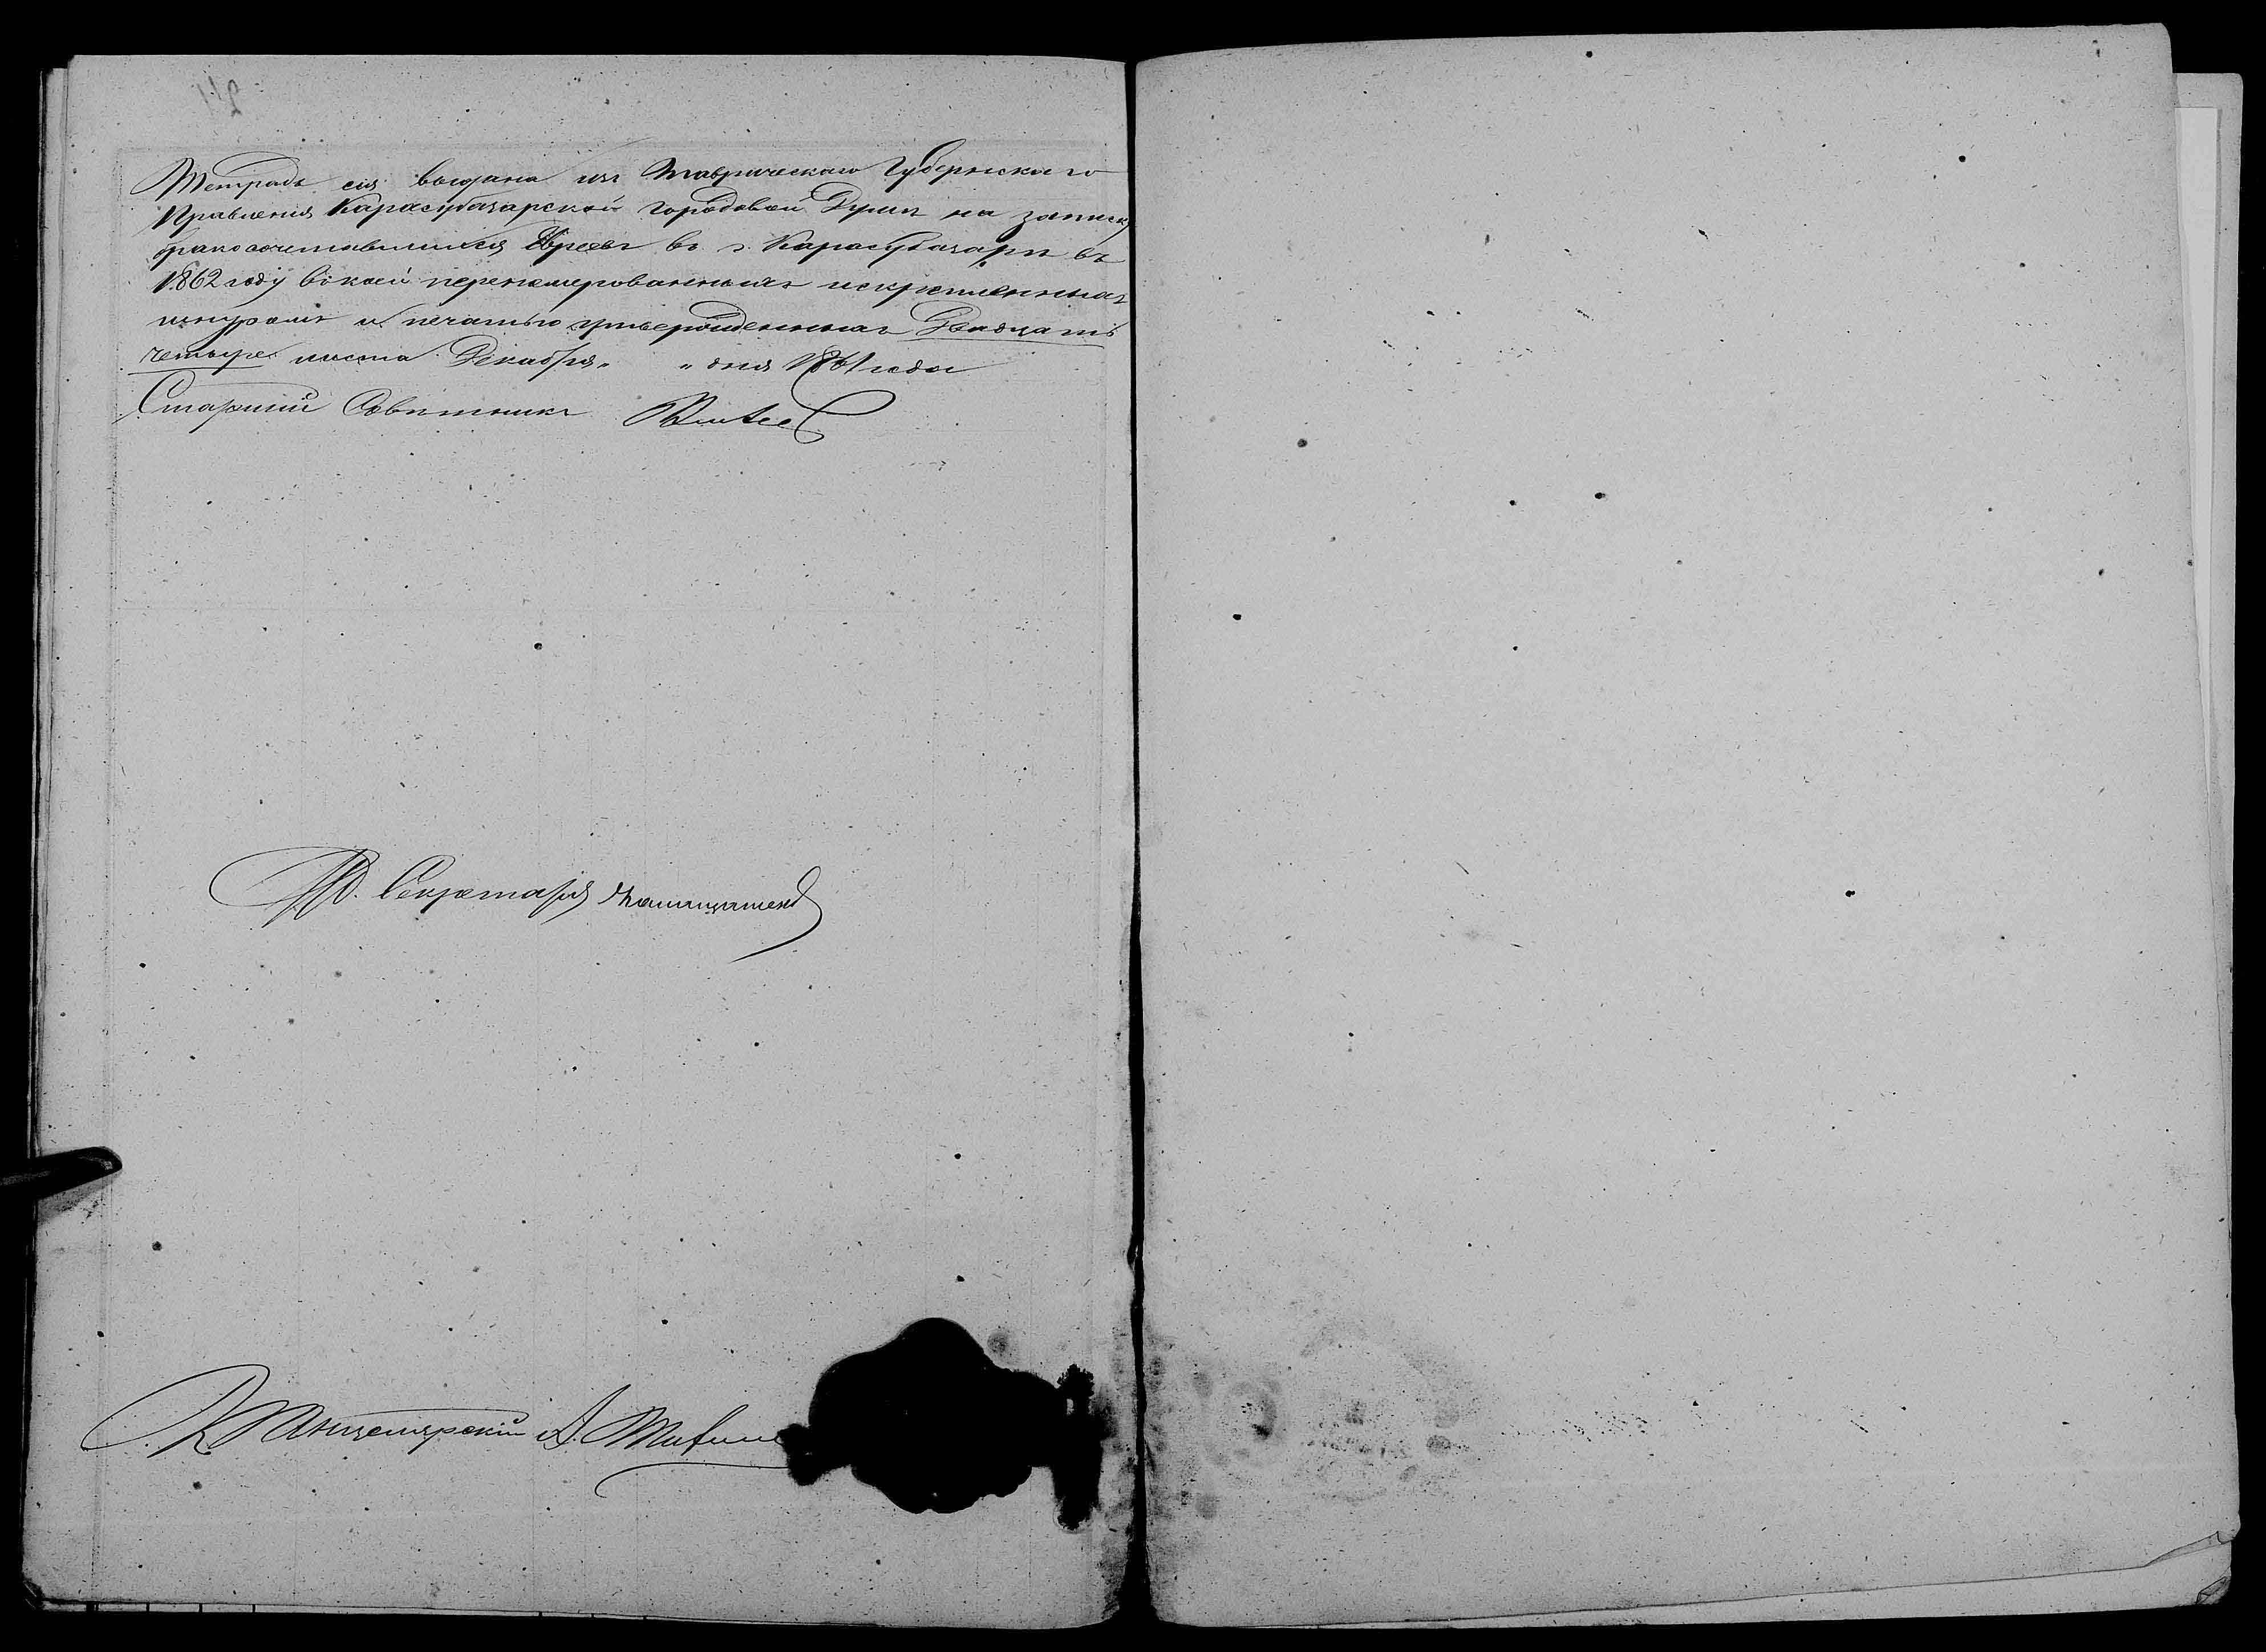 Тетрадь сія выдана изъ Таврическаго Губернскаго
Правленія Карасубазарской Городовой Думѣ на записку
бракосочетавшихся Евреевъ въ г. Карасубазарѣ въ
1862 году въ коей перенумерованныхъ искрепленныхъ
шнуромъ и печатью утвержденныхъ Двадцать
четыре листа Декабря „ „ дня 1861 года
Старшій Совѣтникъ
И.Д. Секретаря
Канцелярскій А.